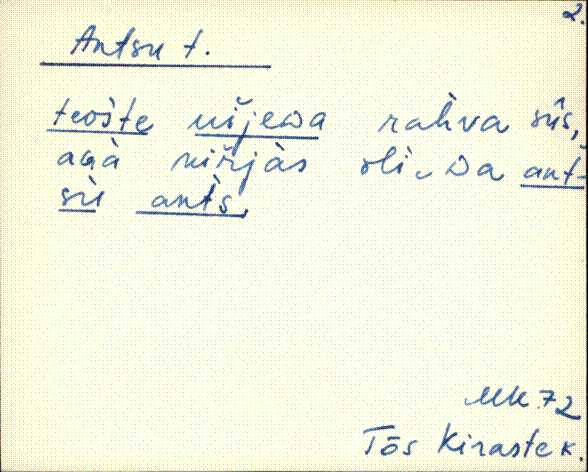 2.
Antsu t.
teošte nišjewa rahva sũs,
aGà niřjàs oli wa ant-
sù ants.
MK 72
Tõs Kirastek.